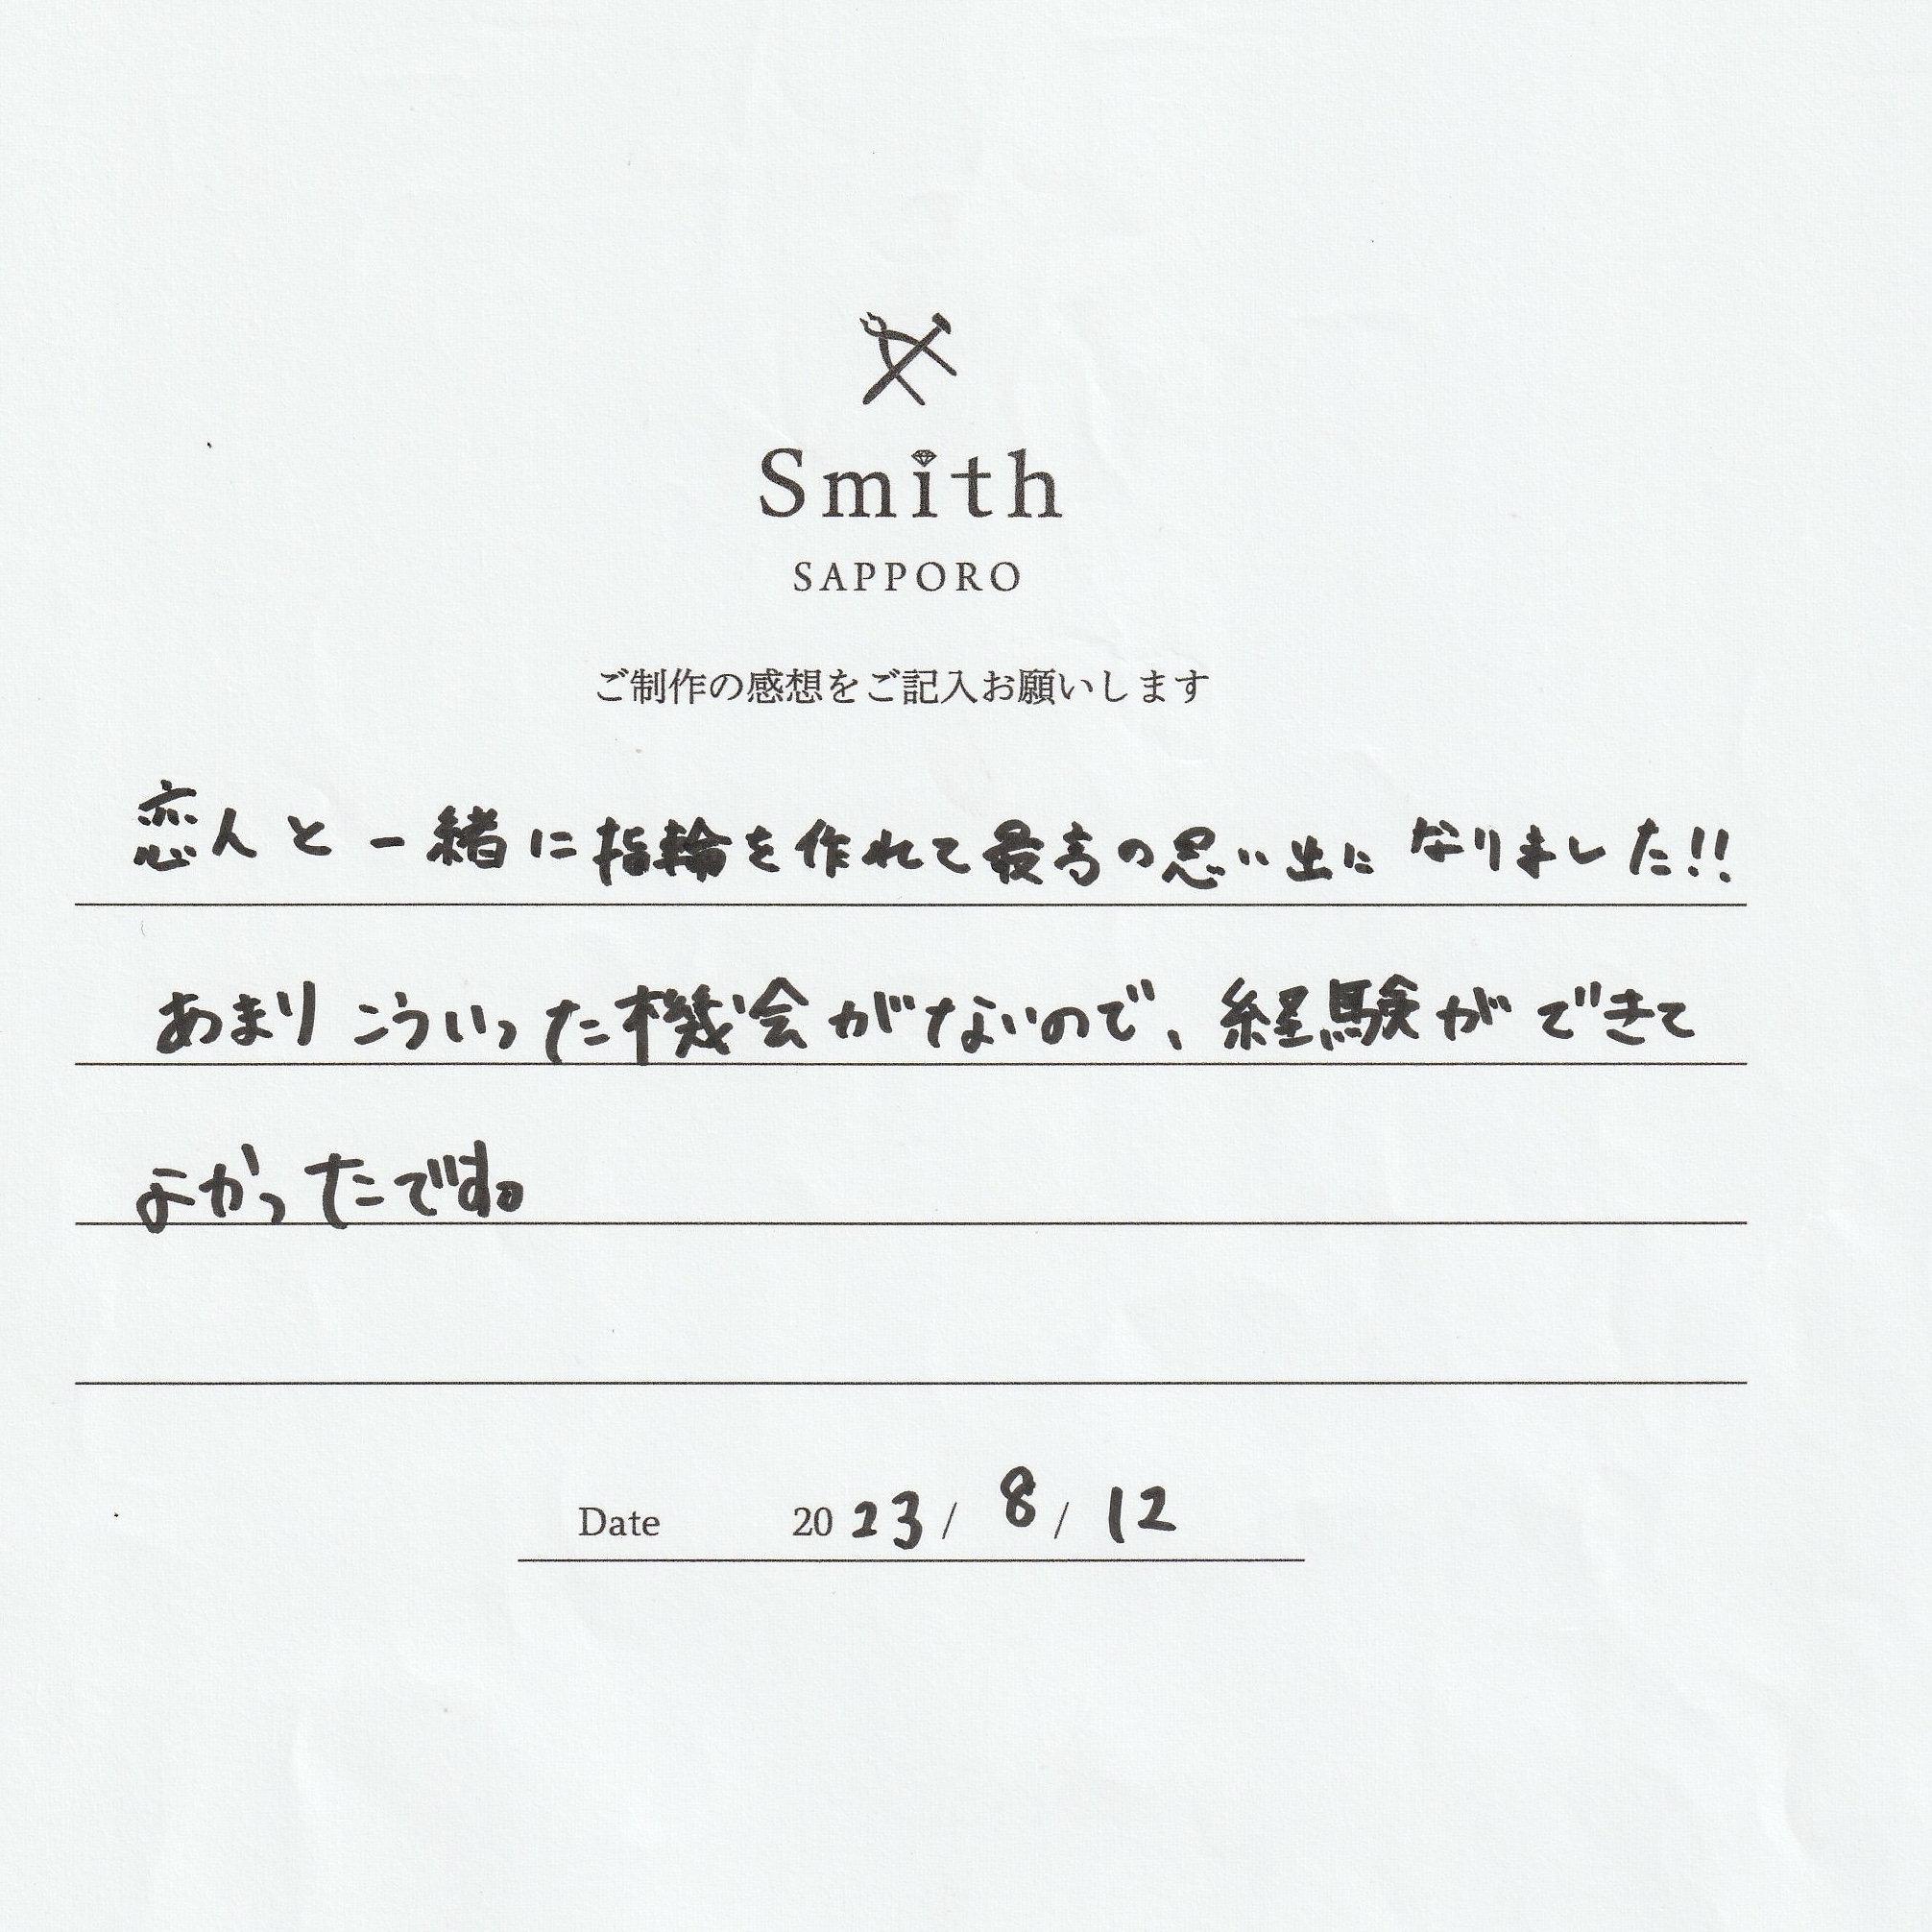 Smith
SAPPORO
ご制作の感想をご記入お願いします
恋人と一緒に指輪を作れて最高の思い出になりました!!
あまりこういった機会がないので、経験ができて
よかったです。
Date 2023/8/12